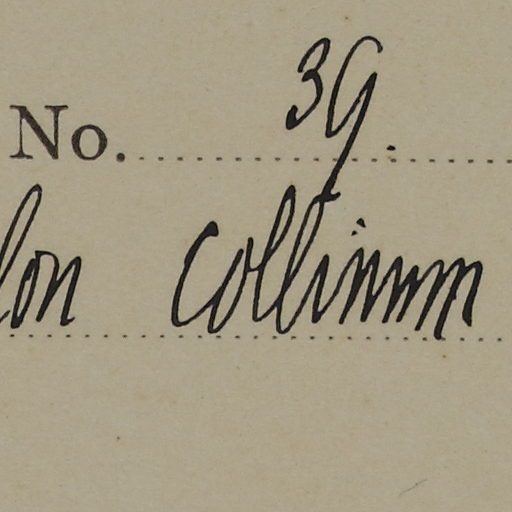 No. 39.
lon Collinum